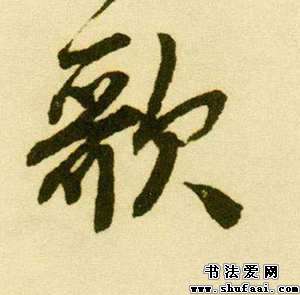 歌
书法爱网
www.shufaai.com